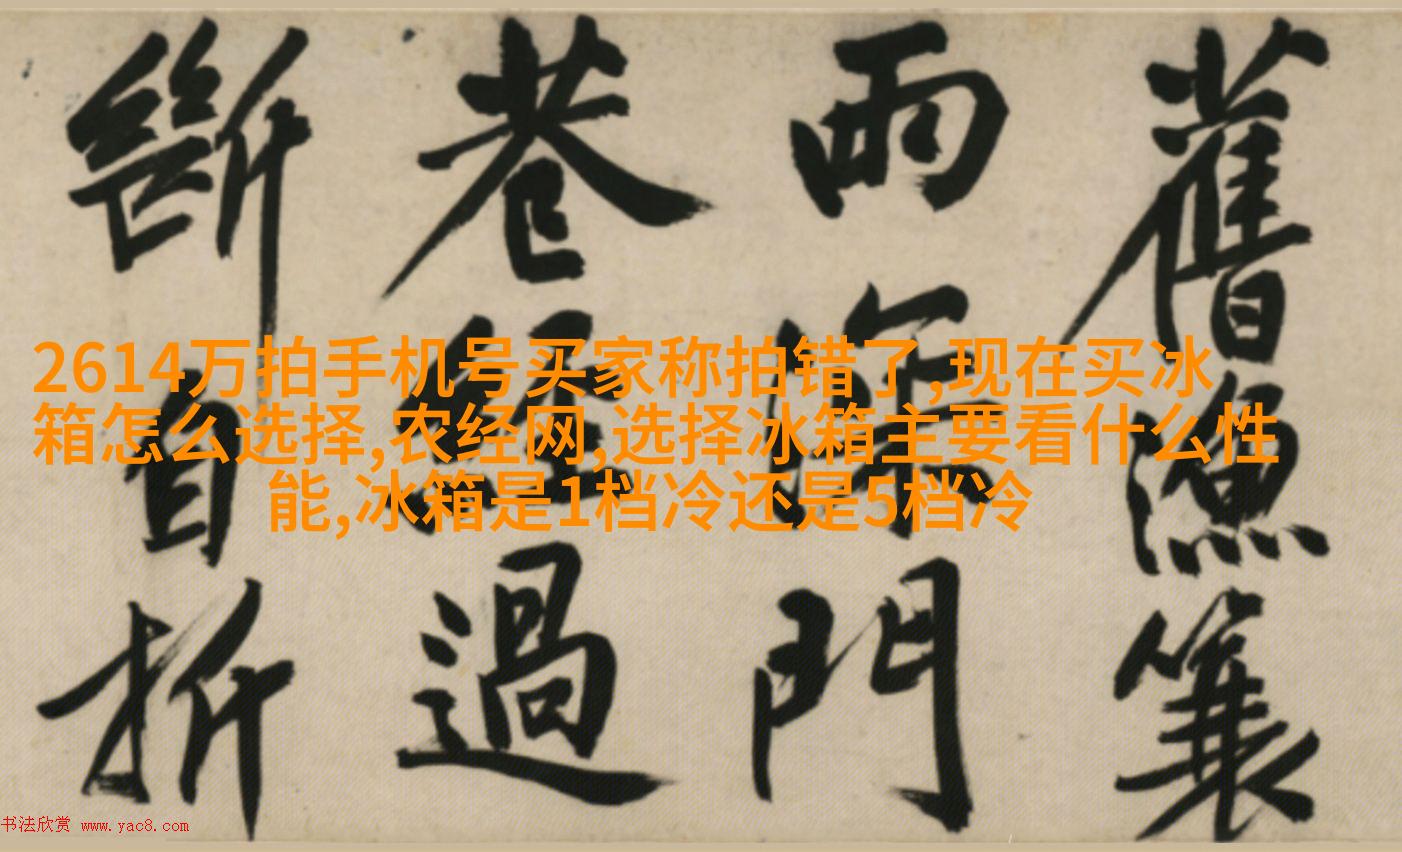 舊漁簑
雨深門
巷經過
斷自折
2614万拍手机号买家称拍错了,现在买冰
箱怎么选择,农经网,选择冰箱主要看什么性
能,冰箱是1档冷还是5档冷
书法欣赏 www.yac8.com